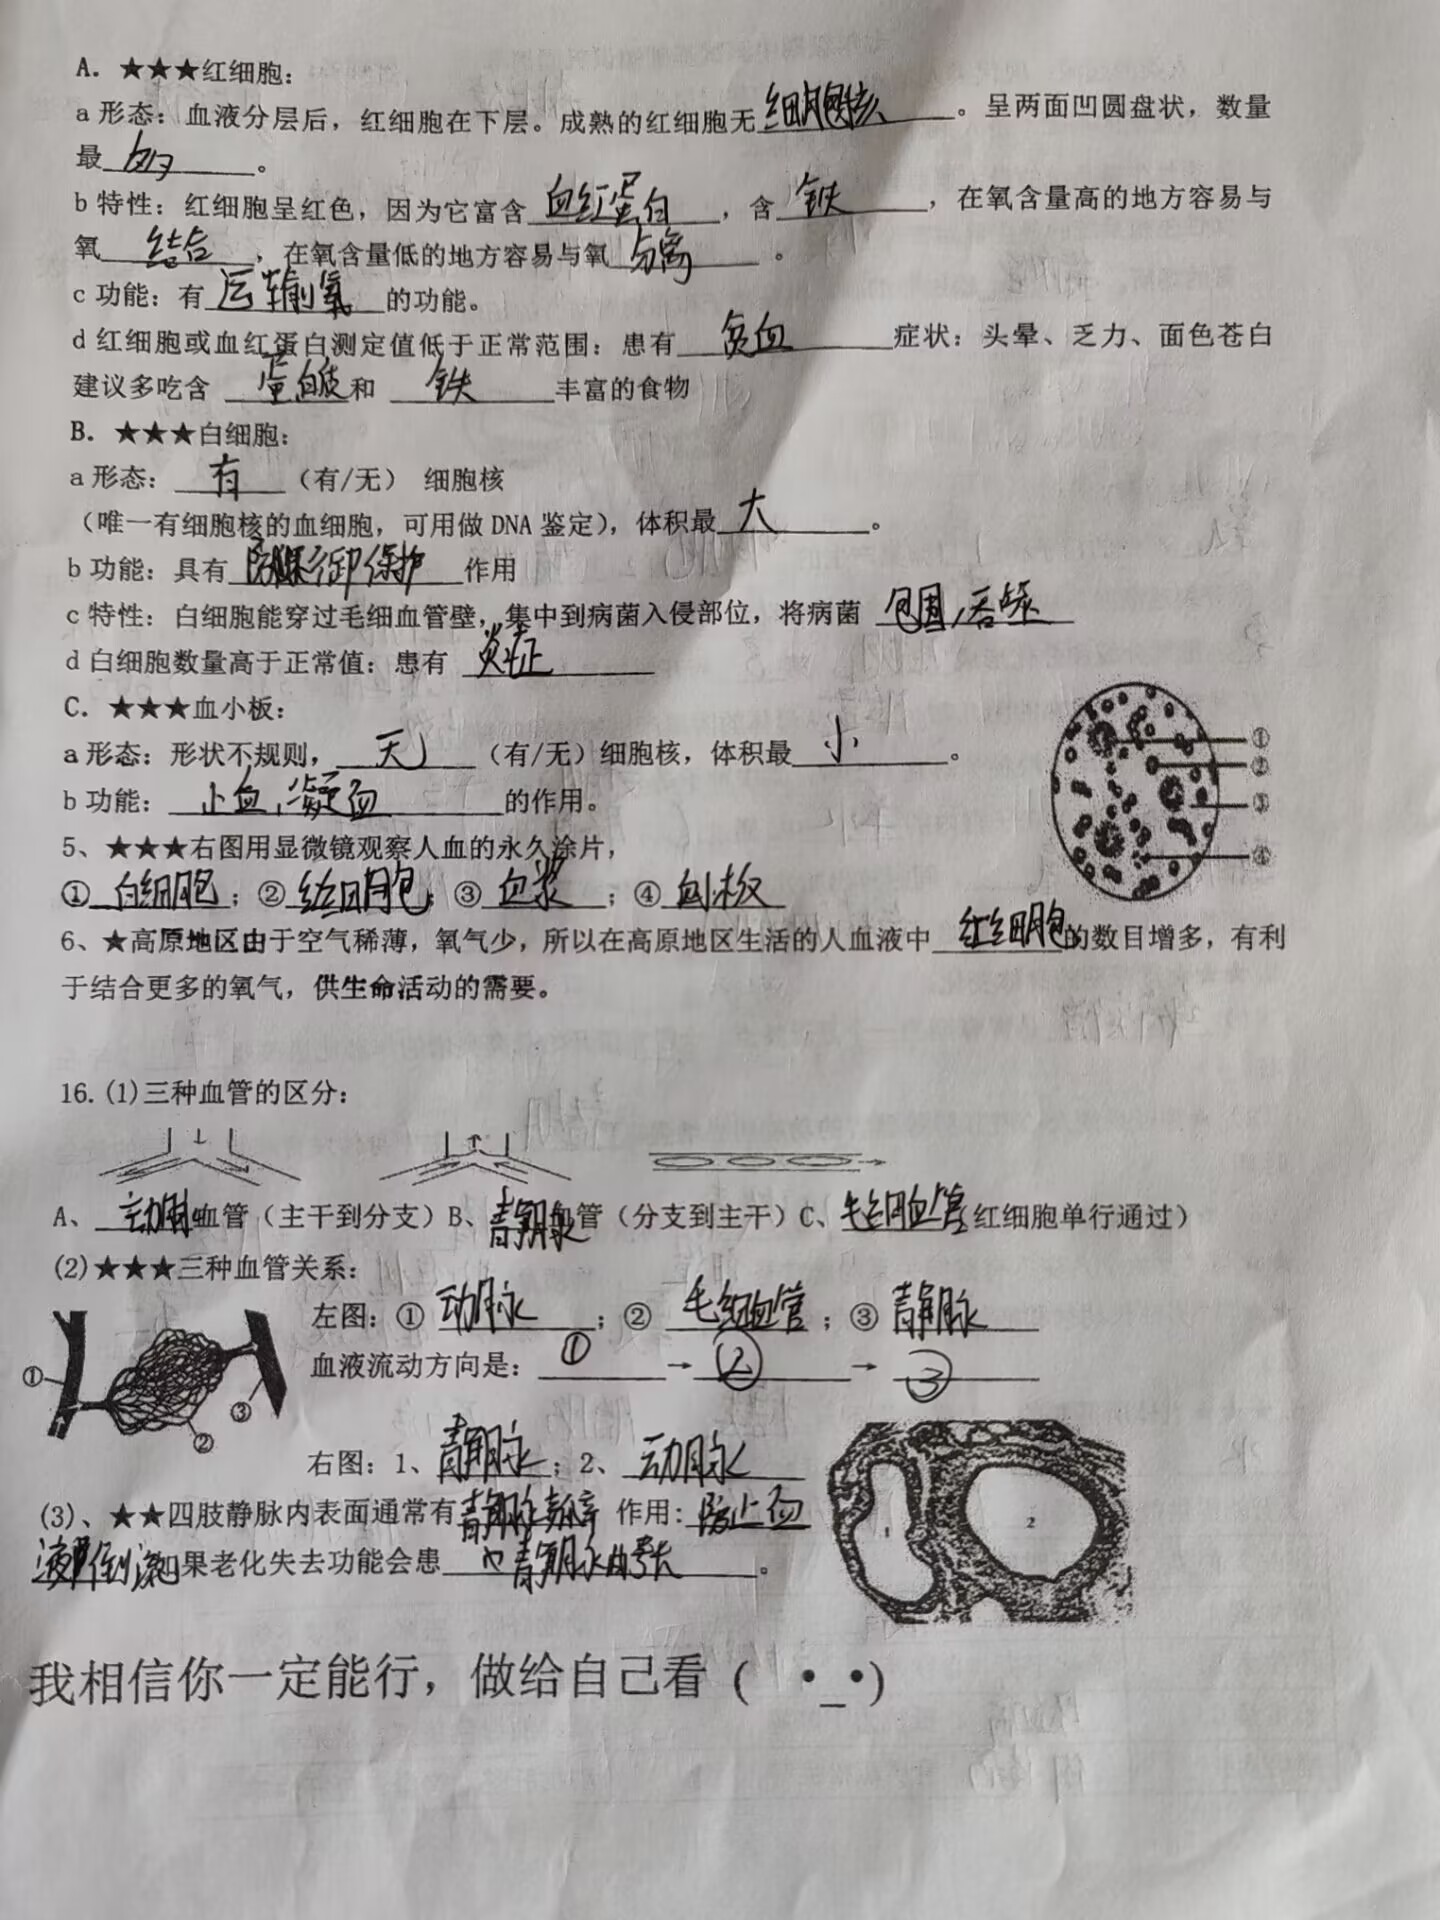 A. ★★★红细胞:
a 形态: 血液分层后, 红细胞在下层。成熟的红细胞无细胞核。呈两面凹圆盘状, 数量
最多。
b 特性: 红细胞呈红色, 因为它富含血红蛋白, 含铁, 在氧含量高的地方容易与
氧结合, 在氧含量低的地方容易与氧分离。
c 功能: 有运输氧的功能。
d 红细胞或血红蛋白测定值低于正常范围: 患有贫血症状: 头晕、乏力、面色苍白
建议多吃含 蛋白质和 铁丰富的食物
B. ★★★白细胞:
a 形态: 有 (有/无) 细胞核
(唯一有细胞核的血细胞, 可用做 DNA 鉴定), 体积最大。
b 功能: 具有防御保护作用
c 特性: 白细胞能穿过毛细血管壁, 集中到病菌入侵部位, 将病菌 包围,吞噬
d 白细胞数量高于正常值: 患有 炎症
C. ★★★血小板:
a 形态: 形状不规则, 无 (有/无) 细胞核, 体积最小。
b 功能: 止血,凝血的作用。
①
②
③
④
5、★★★右图用显微镜观察人血的永久涂片,
①白细胞; ②红细胞; ③血浆; ④血小板
6、★高原地区由于空气稀薄, 氧气少, 所以在高原地区生活的人血液中红细胞的数目增多, 有利
于结合更多的氧气, 供生命活动的需要。
16. (1)三种血管的区分:
A、动脉血管 (主干到分支) B、静脉血管 (分支到主干) C、毛细血管(红细胞单行通过)
(2)★★★三种血管关系:
左图: ①动脉; ②毛细血管; ③静脉
血液流动方向是: ①→②→③
①
②
③
右图: 1、静脉; 2、动脉
1
2
(3)、★★四肢静脉内表面通常有静脉瓣 作用: 防止血
液倒流如果老化失去功能会患静脉曲张。
我相信你一定能行, 做给自己看 ( •_•)